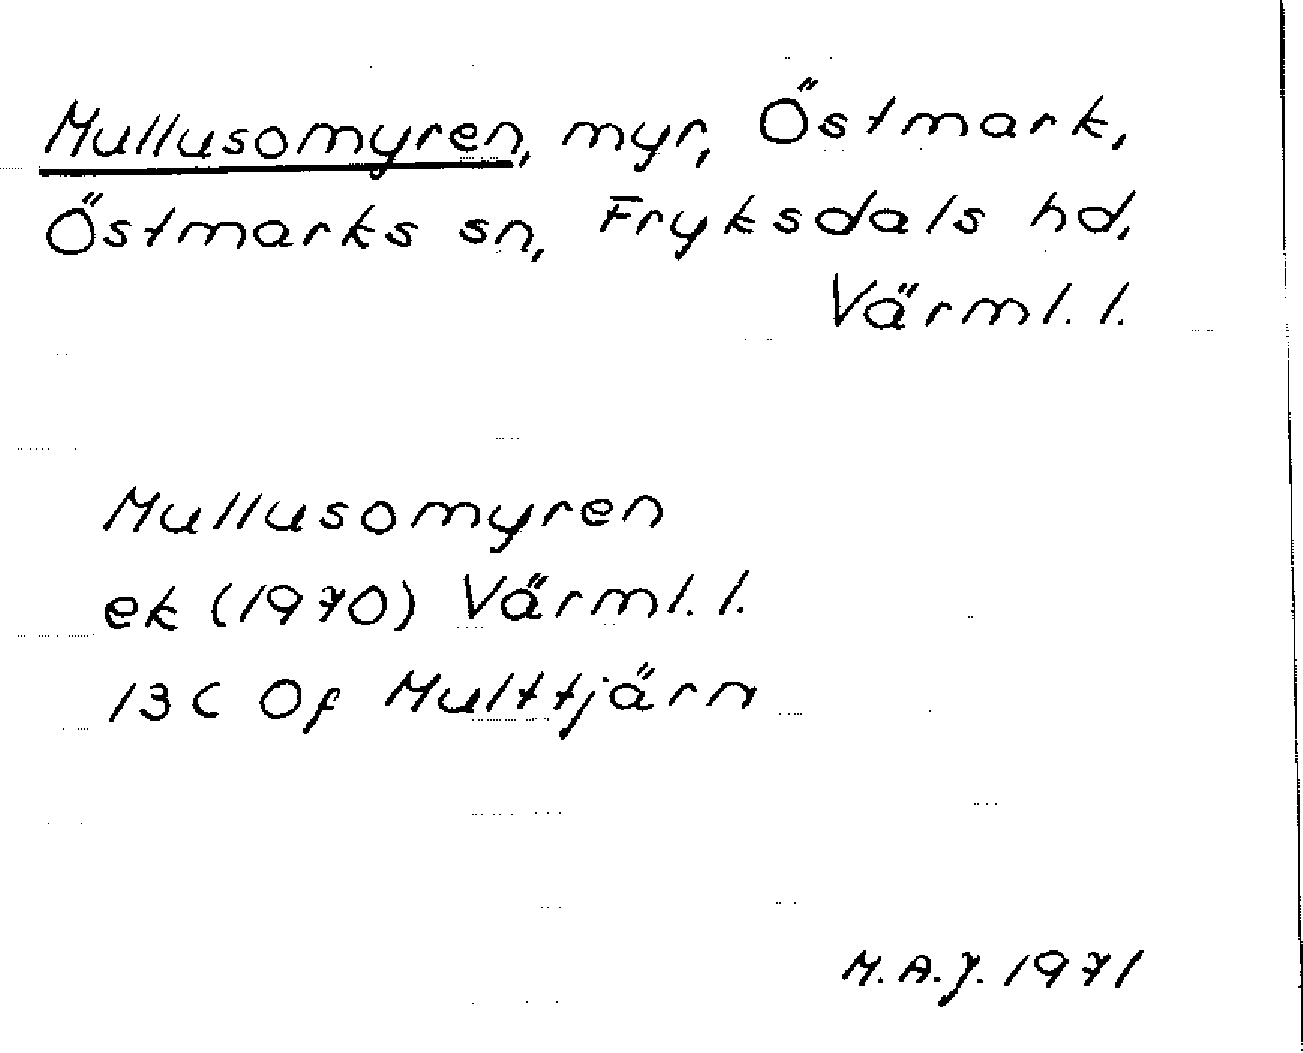 Mullusomyren, myr, Östmark,
Östmarks sn, Fryksdals hd,
Värml. l.
Mullusomyren
ek (1970) Värml. l.
13C 0f Multtjärn
M.A.J. 1971